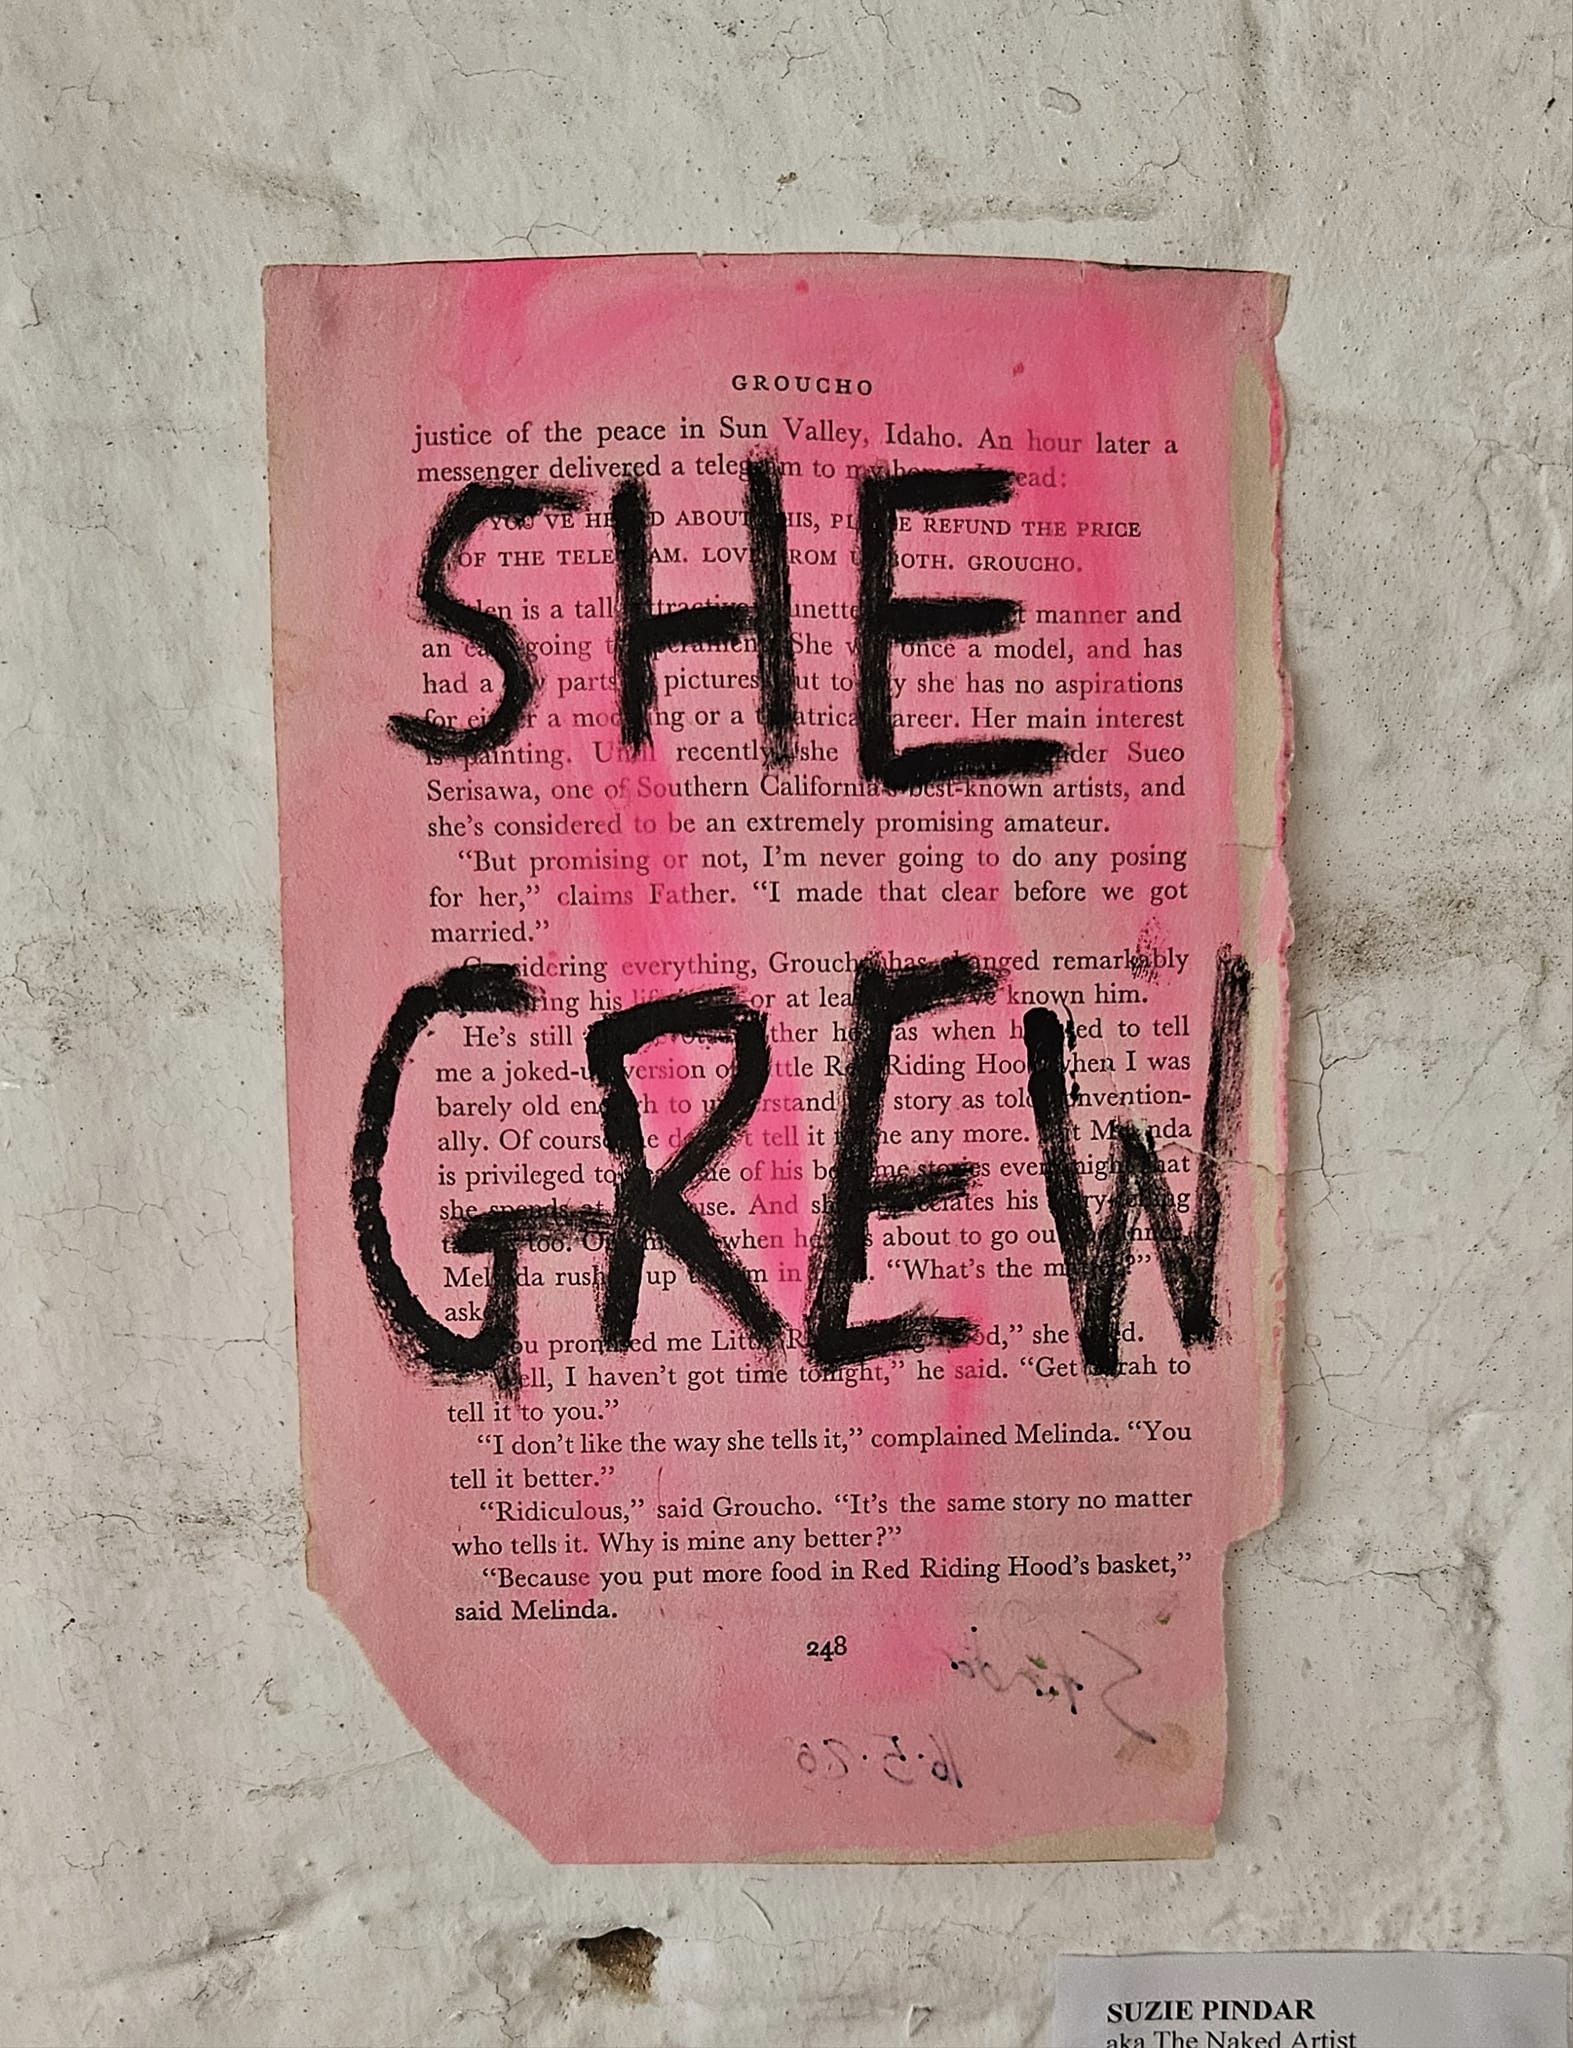 GROUCHO
justice of the peace in Sun Valley, Idaho. An hour later a
messenger delivered a telegram to my home. It read:
SHE
YOU'VE HEARD ABOUT THIS, PLEASE REFUND THE PRICE
OF THE TELEGRAM. LOVE FROM US BOTH. GROUCHO.
is a tall attractive brunette manner and
an easy-going temperament. She was once a model, and has
had a few parts in pictures but today she has no aspirations
for either a modeling or a theatrical career. Her main interest
is painting. Until recently she under Sueo
Serisawa, one of Southern California's best-known artists, and
she's considered to be an extremely promising amateur.
“But promising or not, I'm never going to do any posing
for her,” claims Father. “I made that clear before we got
married.”
GREW
Considering everything, Groucho has changed remarkably
during his or at least known him.
He's still father he was when he used to tell
me a joked-up version of Little Red Riding Hood when I was
barely old enough to understand the story as told convention-
ally. Of course he doesn't tell it to me any more. But Melinda
is privileged to hear one of his bedtime stories every night that
she spends at house. And she appreciates his story-telling
too. when he was about to go out
Melinda rushed up to him in “What's the matter?”
asked
“You promised me Little Red Riding Hood,” she said.
“Well, I haven't got time tonight,” he said. “Get Sarah to
tell it to you.”
“I don't like the way she tells it,” complained Melinda. “You
tell it better.”
“Ridiculous,” said Groucho. “It's the same story no matter
who tells it. Why is mine any better?”
“Because you put more food in Red Riding Hood's basket,”
said Melinda.
248
16.5.26
SUZIE PINDAR
aka The Naked Artist